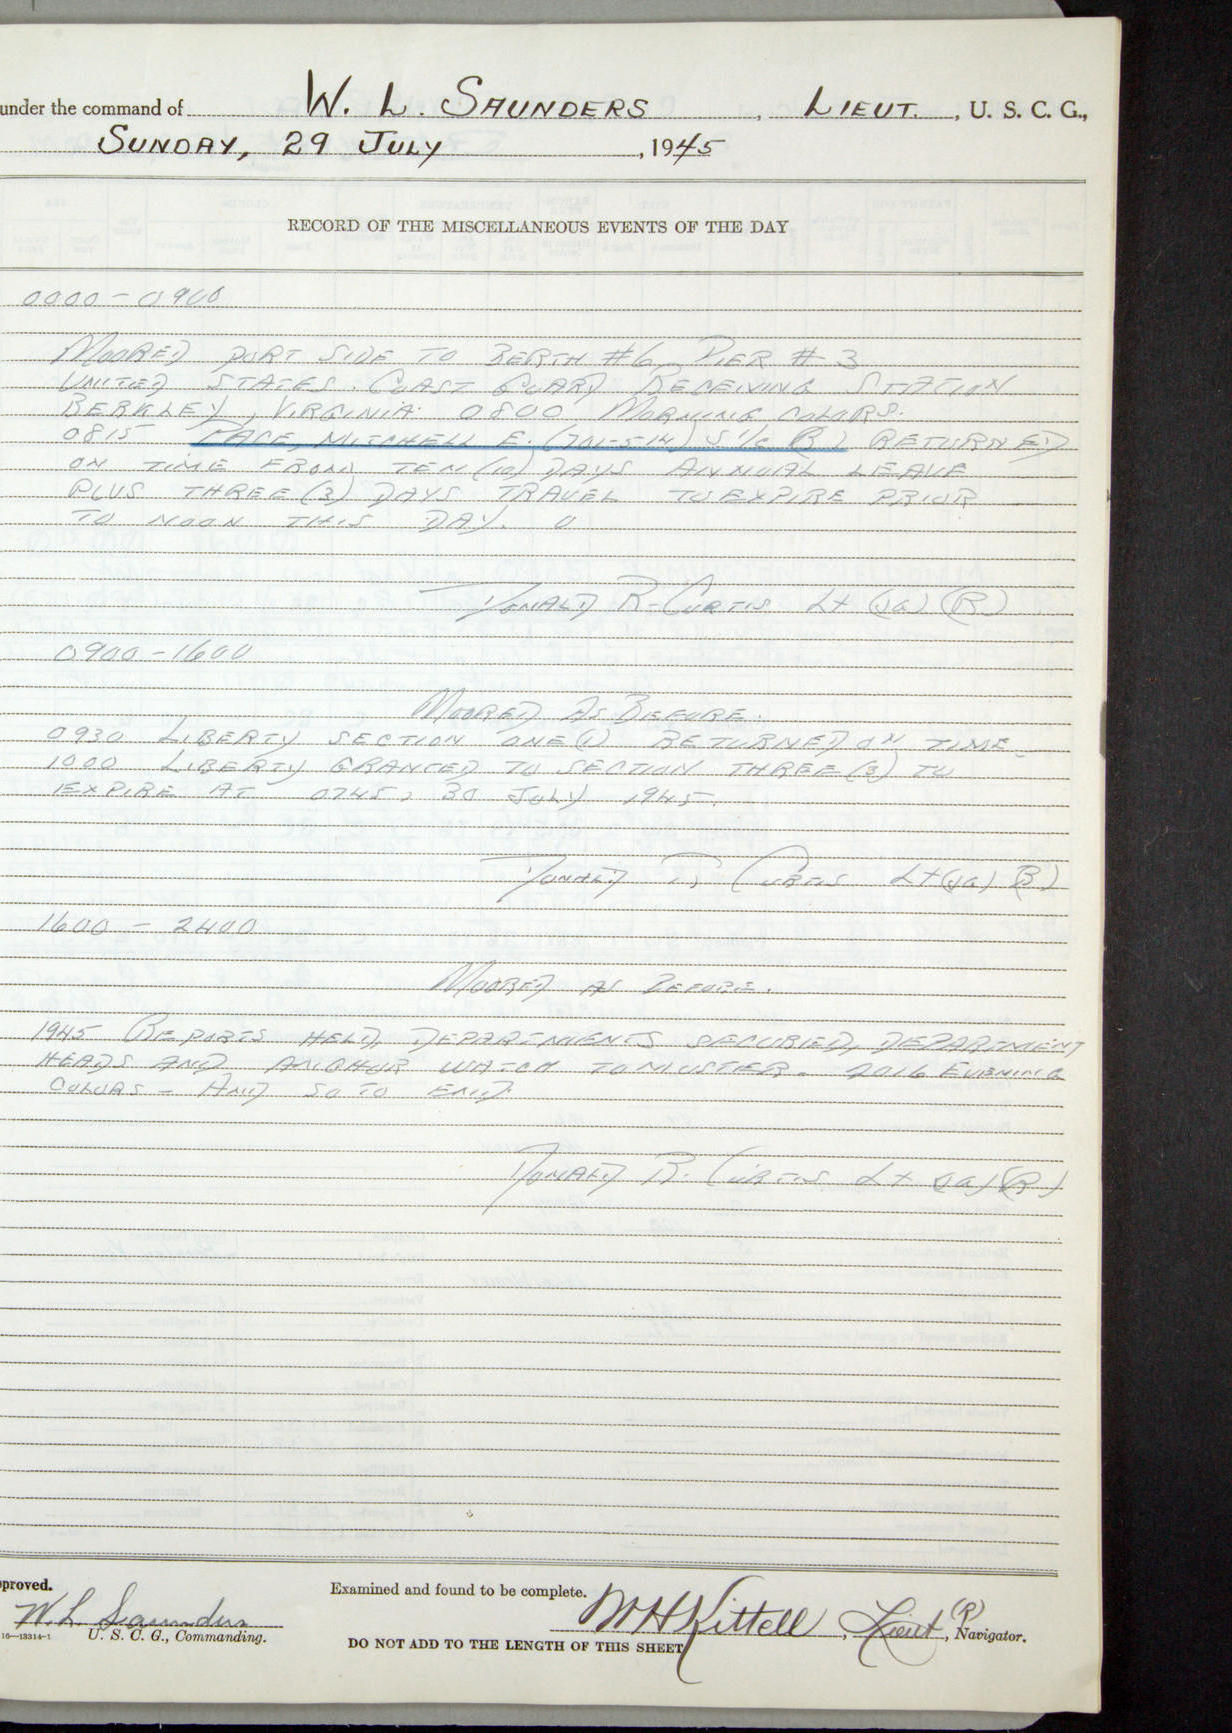 under the command of W. L. SAUNDERS, LIEUT., U. S. C. G.,
SUNDAY, 29 JULY, 1945
RECORD OF THE MISCELLANEOUS EVENTS OF THE DAY
0000-0900
MOORED PORT SIDE TO BERTH #6, PIER #3
UNITED STATES COAST GUARD RECEIVING STATION
BERKLEY, VIRGINIA. 0800 MORNING COLORS.
0815 PACE, MITCHELL E. (701-514) S 1/c (R) RETURNED
ON TIME FROM TEN (10) DAYS ANNUAL LEAVE
PLUS THREE (3) DAYS TRAVEL TO EXPIRE PRIOR
TO NOON THIS DAY.
DONALD R. CURTIS Lt (JG) (R)
0900-1600
MOORED AS BEFORE.
0930 LIBERTY SECTION ONE (1) RETURNED ON TIME.
1000 LIBERTY GRANTED TO SECTION THREE (3) TO
EXPIRE AT 0745, 30 JULY 1945.
DONALD R. CURTIS Lt (JG) (R)
1600 - 2400
MOORED AS BEFORE.
1945 REPORTS HELD, DEPARTMENTS SECURED, DEPARTMENT
HEADS AND ANCHOR WATCH TO MUSTER. 2016 EVENING
COLORS - AND SO TO END.
DONALD R. CURTIS Lt (JG) (R)
pproved.
W. L. Saunders
U. S. C. G., Commanding.
16-13314-1
Examined and found to be complete.
W H Kittell, Lieut (R), Navigator.
DO NOT ADD TO THE LENGTH OF THIS SHEET